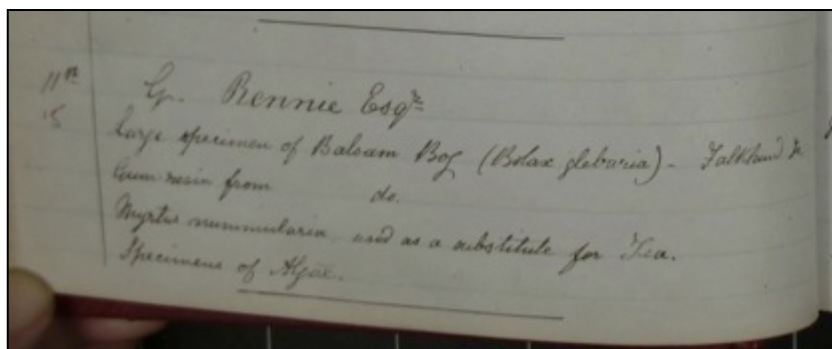 11th
15
G. Rennie Esqre
large specimen of Balsam Bog (Bolax glebaria) - Falkland Is
Gum-resin from do.
Myrtus nummularia, used as a substitute for Tea.
Specimens of Algae.